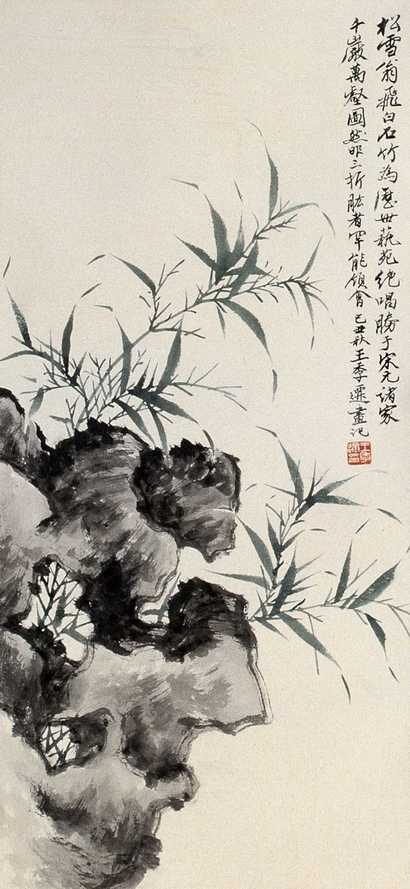 松雪翁飛白石竹為歷世藝苑絕唱勝于宋元諸家
千巖萬壑圖然非三折肱者罕能領會己丑秋王季遷畫記